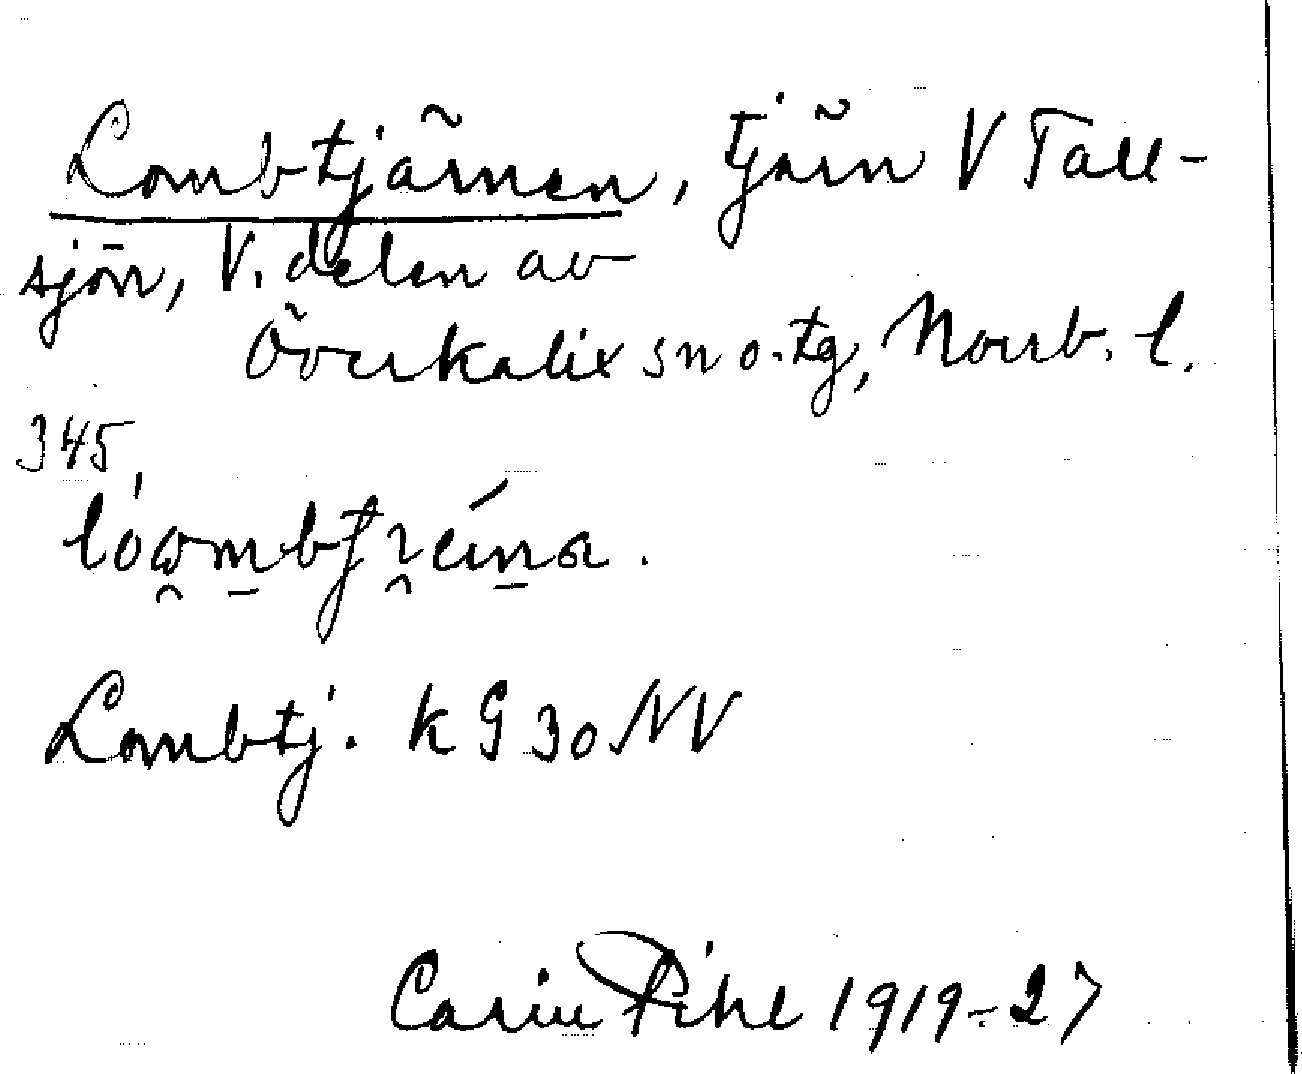 Lombtjärnen, tjärn V Tall-
sjön, V. delen av
Överkalix sn o. tg, Norrb. l.
345.
Lombtj. k G 30 NV
Carin Pihl 1919-27